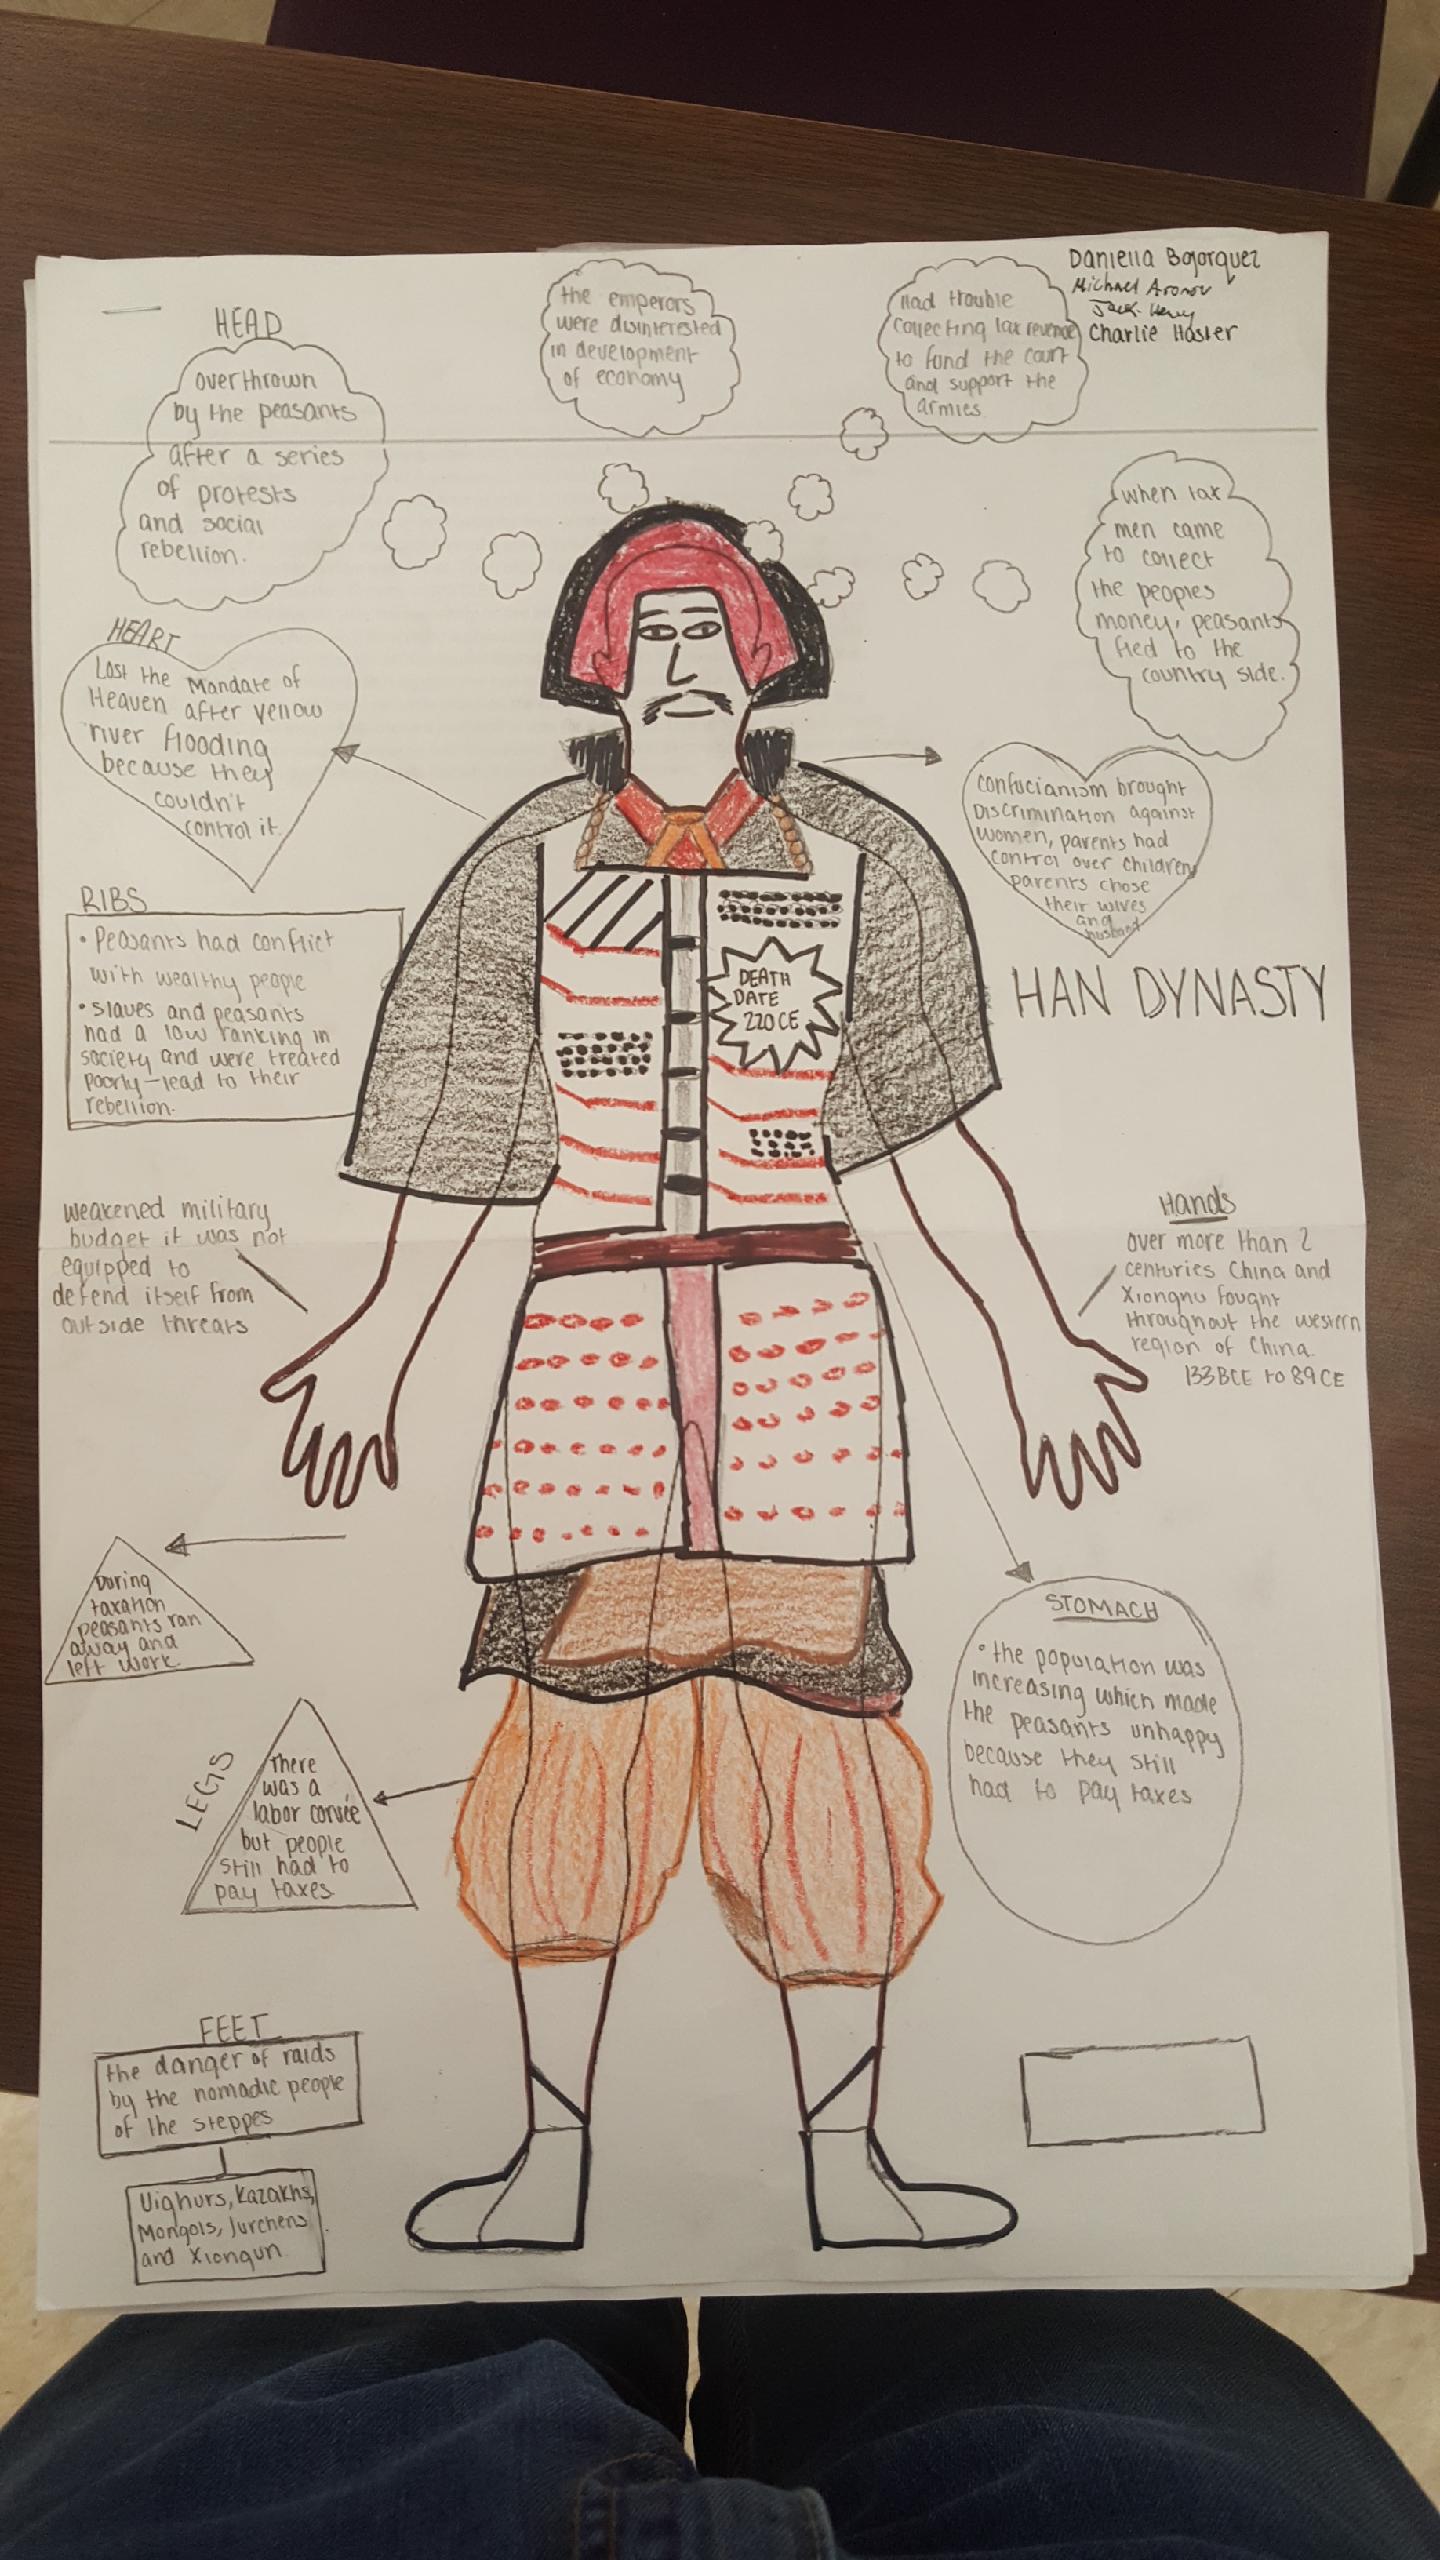 Daniella Bojorquez
Michael Aronov
Jack Henry
Charlie Hasler
HEAD
overthrown
by the peasants
after a series
of protests
and social
rebellion.
the emperors
were disinterested
in development
of economy
Had trouble
collecting tax revenue
to fund the court
and support the
armies.
when tax
men came
to collect
the peoples
money, peasants
fled to the
country side.
HEART
Lost the Mandate of
Heaven after yellow
river flooding
because they
couldn't
control it.
Confucianism brought
Discrimination against
women, parents had
control over children,
parents chose
their wives
and
husband
RIBS
• Peasants had conflict
with wealthy people
• Slaves and peasants
had a low ranking in
society and were treated
poorly—lead to their
rebellion.
DEATH
DATE
220 CE
HAN DYNASTY
weakened military
budget it was not
equipped to
defend itself from
outside threats
Hands
over more than 2
centuries China and
Xiongnu fought
throughout the western
region of China.
133 BCE to 89 CE
During
taxation
peasants ran
away and
left work.
STOMACH
• the population was
increasing which made
the peasants unhappy
because they still
had to pay taxes
LEGS
There
was a
labor corvée
but people
still had to
pay taxes
FEET
the danger of raids
by the nomadic people
of the steppes
Uighurs, Kazakhs,
Mongols, Jurchens
and Xiongun